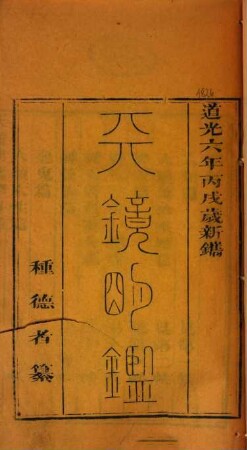 1826
道光六年丙戌歲新鐫
天鏡明鑑
種德者纂